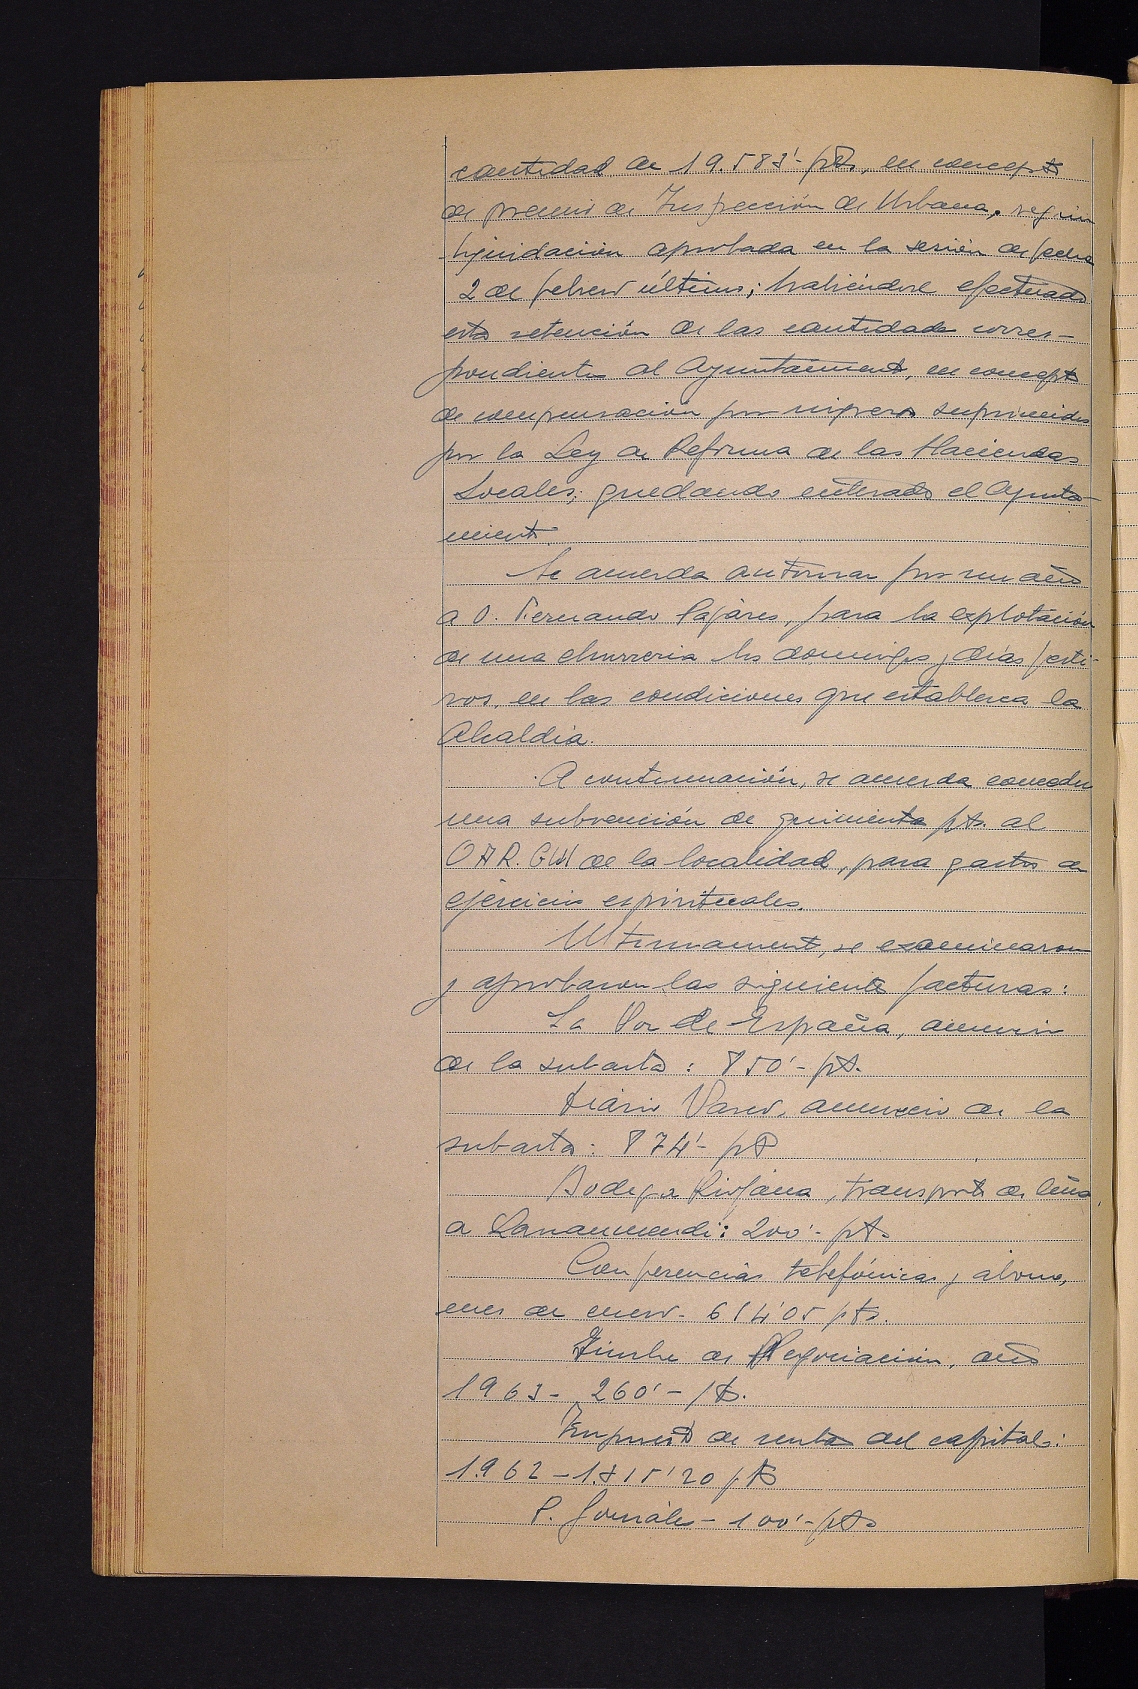 cantidad de 19.583'- pts, en concepto
de premio de Inspección de Urbana, según
liquidación aprobada en la sesión de fecha
2 de febrero último; habiéndose efectuado
esta retención de las cantidades corres-
pondientes al Ayuntamiento, en concepto
de compensación por ingresos suprimidos
por la Ley de Reforma de las Haciendas
Locales; quedando enterado el Ayunta-
miento.
Se acuerda autorizar por un año
a D. Fernando Pajares, para la explotación
de una churreria los domingos y días festi-
vos, en las condiciones que establezca la
Alcaldía.
A continuación, se acuerda conceder
una subvención de quinientas pts. al
de la localidad, para gastos de
ejercicios espirituales.
Ultimamente, se examinaron
y aprobaron las siguientes facturas:
La Voz de España, anuncio
de la subasta: 850'- pts.
Diario Vasco, anuncio de la
subasta: 874'- pts
Bodega Riojana, transporte de leña
a : 200'- pts
Conferencias telefónicas y abono,
mes de enero- 614'05 pts.
Timbre de Negociación, año
1963- 260'- pts.
Impuesto de renta del capital:
1962 - pts
P. González - 100'- pts